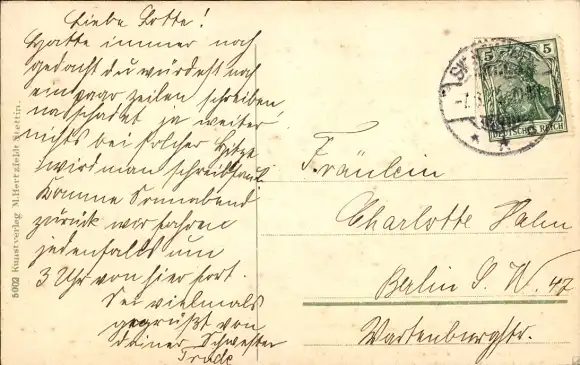 Liebe Lotte!
Hatte immer noch
gedacht du würdest noch
ein paar Zeilen schreiben,
na schadet ja weiter
nichts bei solcher Hitze
wird man schreibfaul.
Komme Sonnabend
zurück wir fahren
jedenfalls um
3 Uhr von hier fort.
Sei vielmals
gegrüßt von
deiner Schwester
Trude
5002 Kunstverlag M. Hertzfeldt Stettin.
5 5
DEUTSCHES REICH
Fräulein
Charlotte Halm
Berlin S. W. 47
Wartenburgstr.